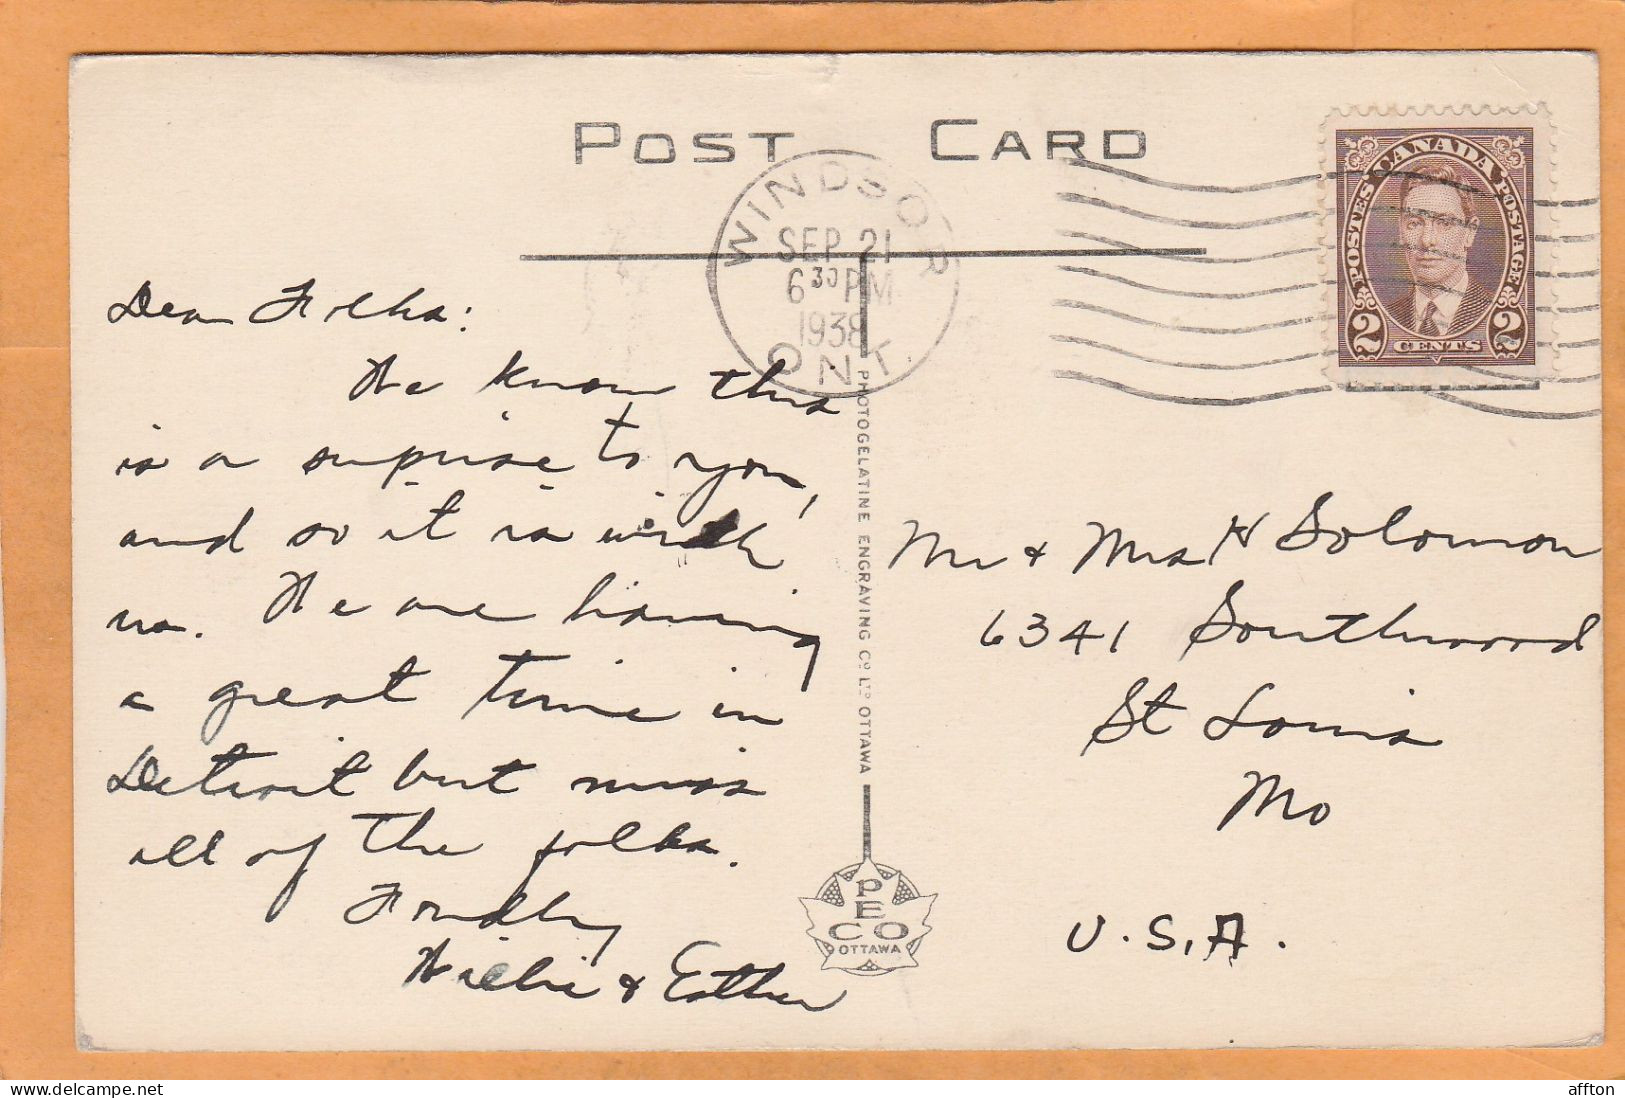 POST CARD
WINDSOR
SEP 21
6 30 PM
1938
ONT
CANADA
POSTES POSTAGE
2 CENTS 2
Dear Folks:
We know this
is a surprise to you,
and so it is with
us. We are having
a great time in
Detroit but miss
all of the folks.
Fondly
Willie & Esther
PHOTOGELATINE ENGRAVING CO LTD OTTAWA
PECO
OTTAWA
Mr & Mrs H Solomon
6341 Southwood
St Louis
Mo
U.S.A.
delcampe.net
affton